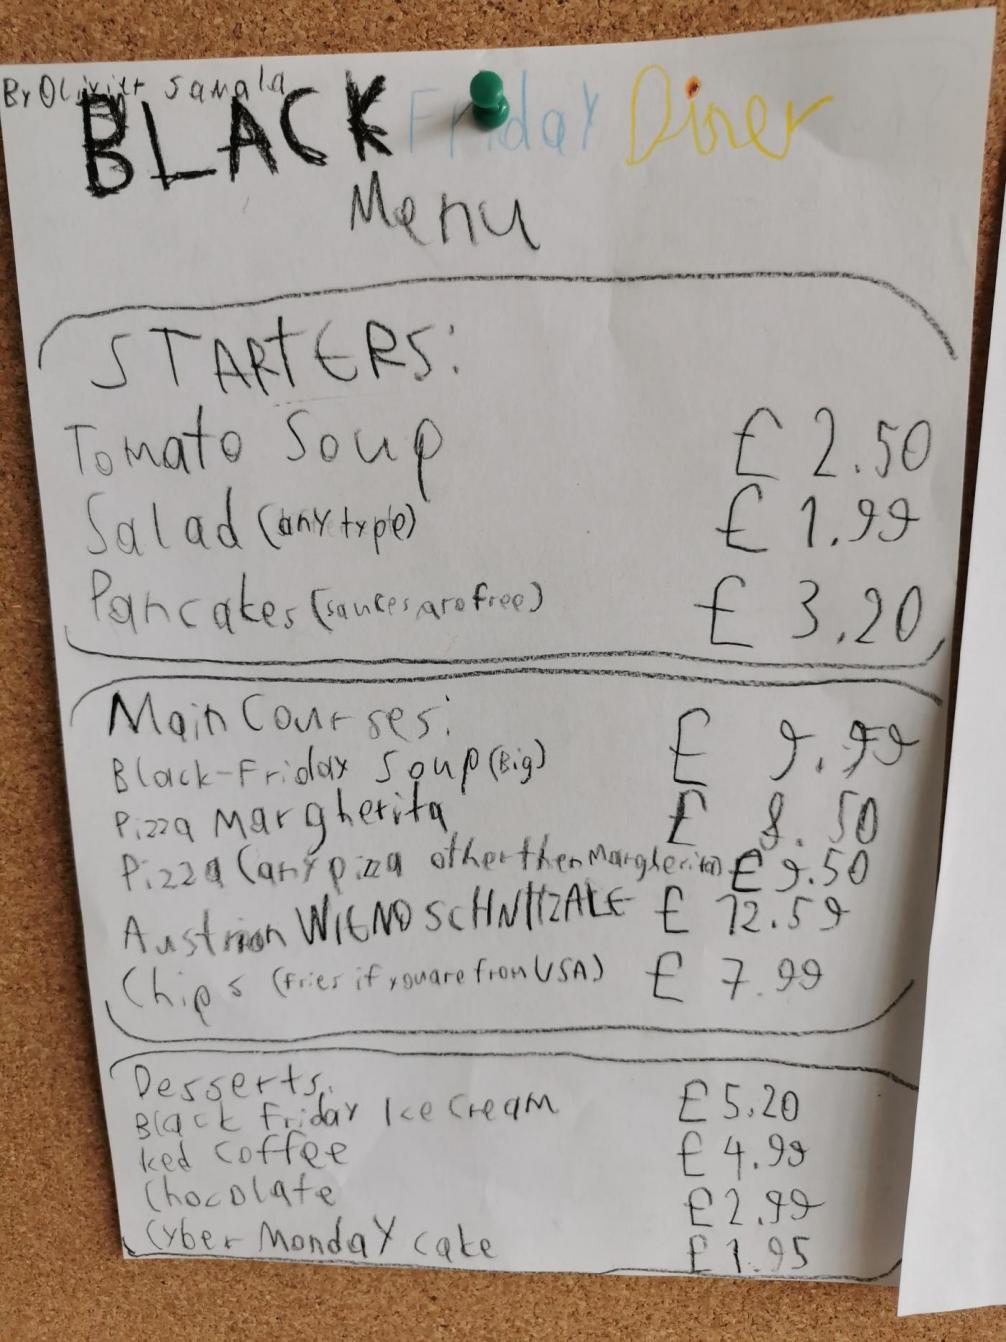 By Samala
BLACK Friday Diner
Menu
STARTERS:
Tomato Soup £ 2.50
Salad (any type) £ 1.99
Pancakes (sauces are free) £ 3.20
Main Courses:
Black-Friday Soup (Big) £ 9.99
Pizza Margherita £ 8.50
Pizza (any pizza other then Margherita) £ 9.50
Austrian WIENO SCHNITZALE £ 12.59
Chips (fries if you are from USA) £ 7.99
Desserts:
Black Friday Ice Cream £ 5.20
Iced Coffee £ 4.99
Chocolate £ 2.99
Cyber Monday cake £ 1.95